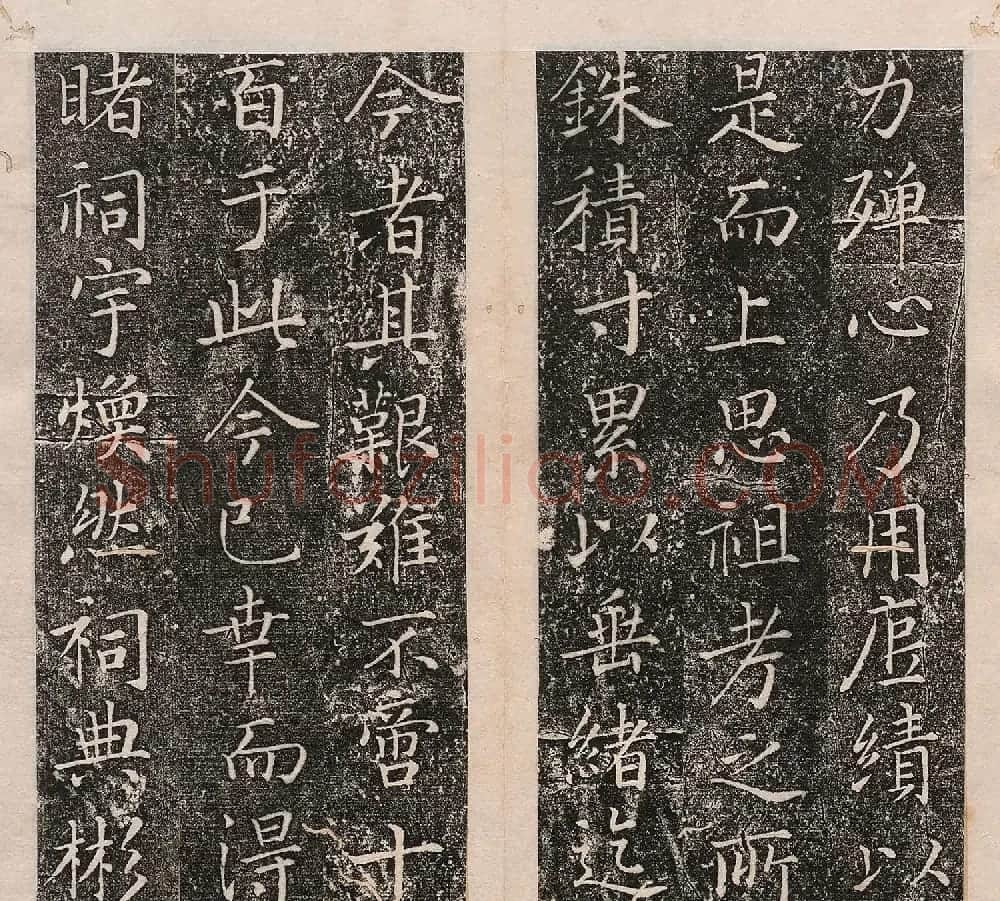 力殫心乃用底績以
是而上思祖考之所
銖積寸累以垂緒迄
今者其艱難不啻十
百于此今已幸而得
睹祠宇煥然祠典彬
Shufaziliao.COM